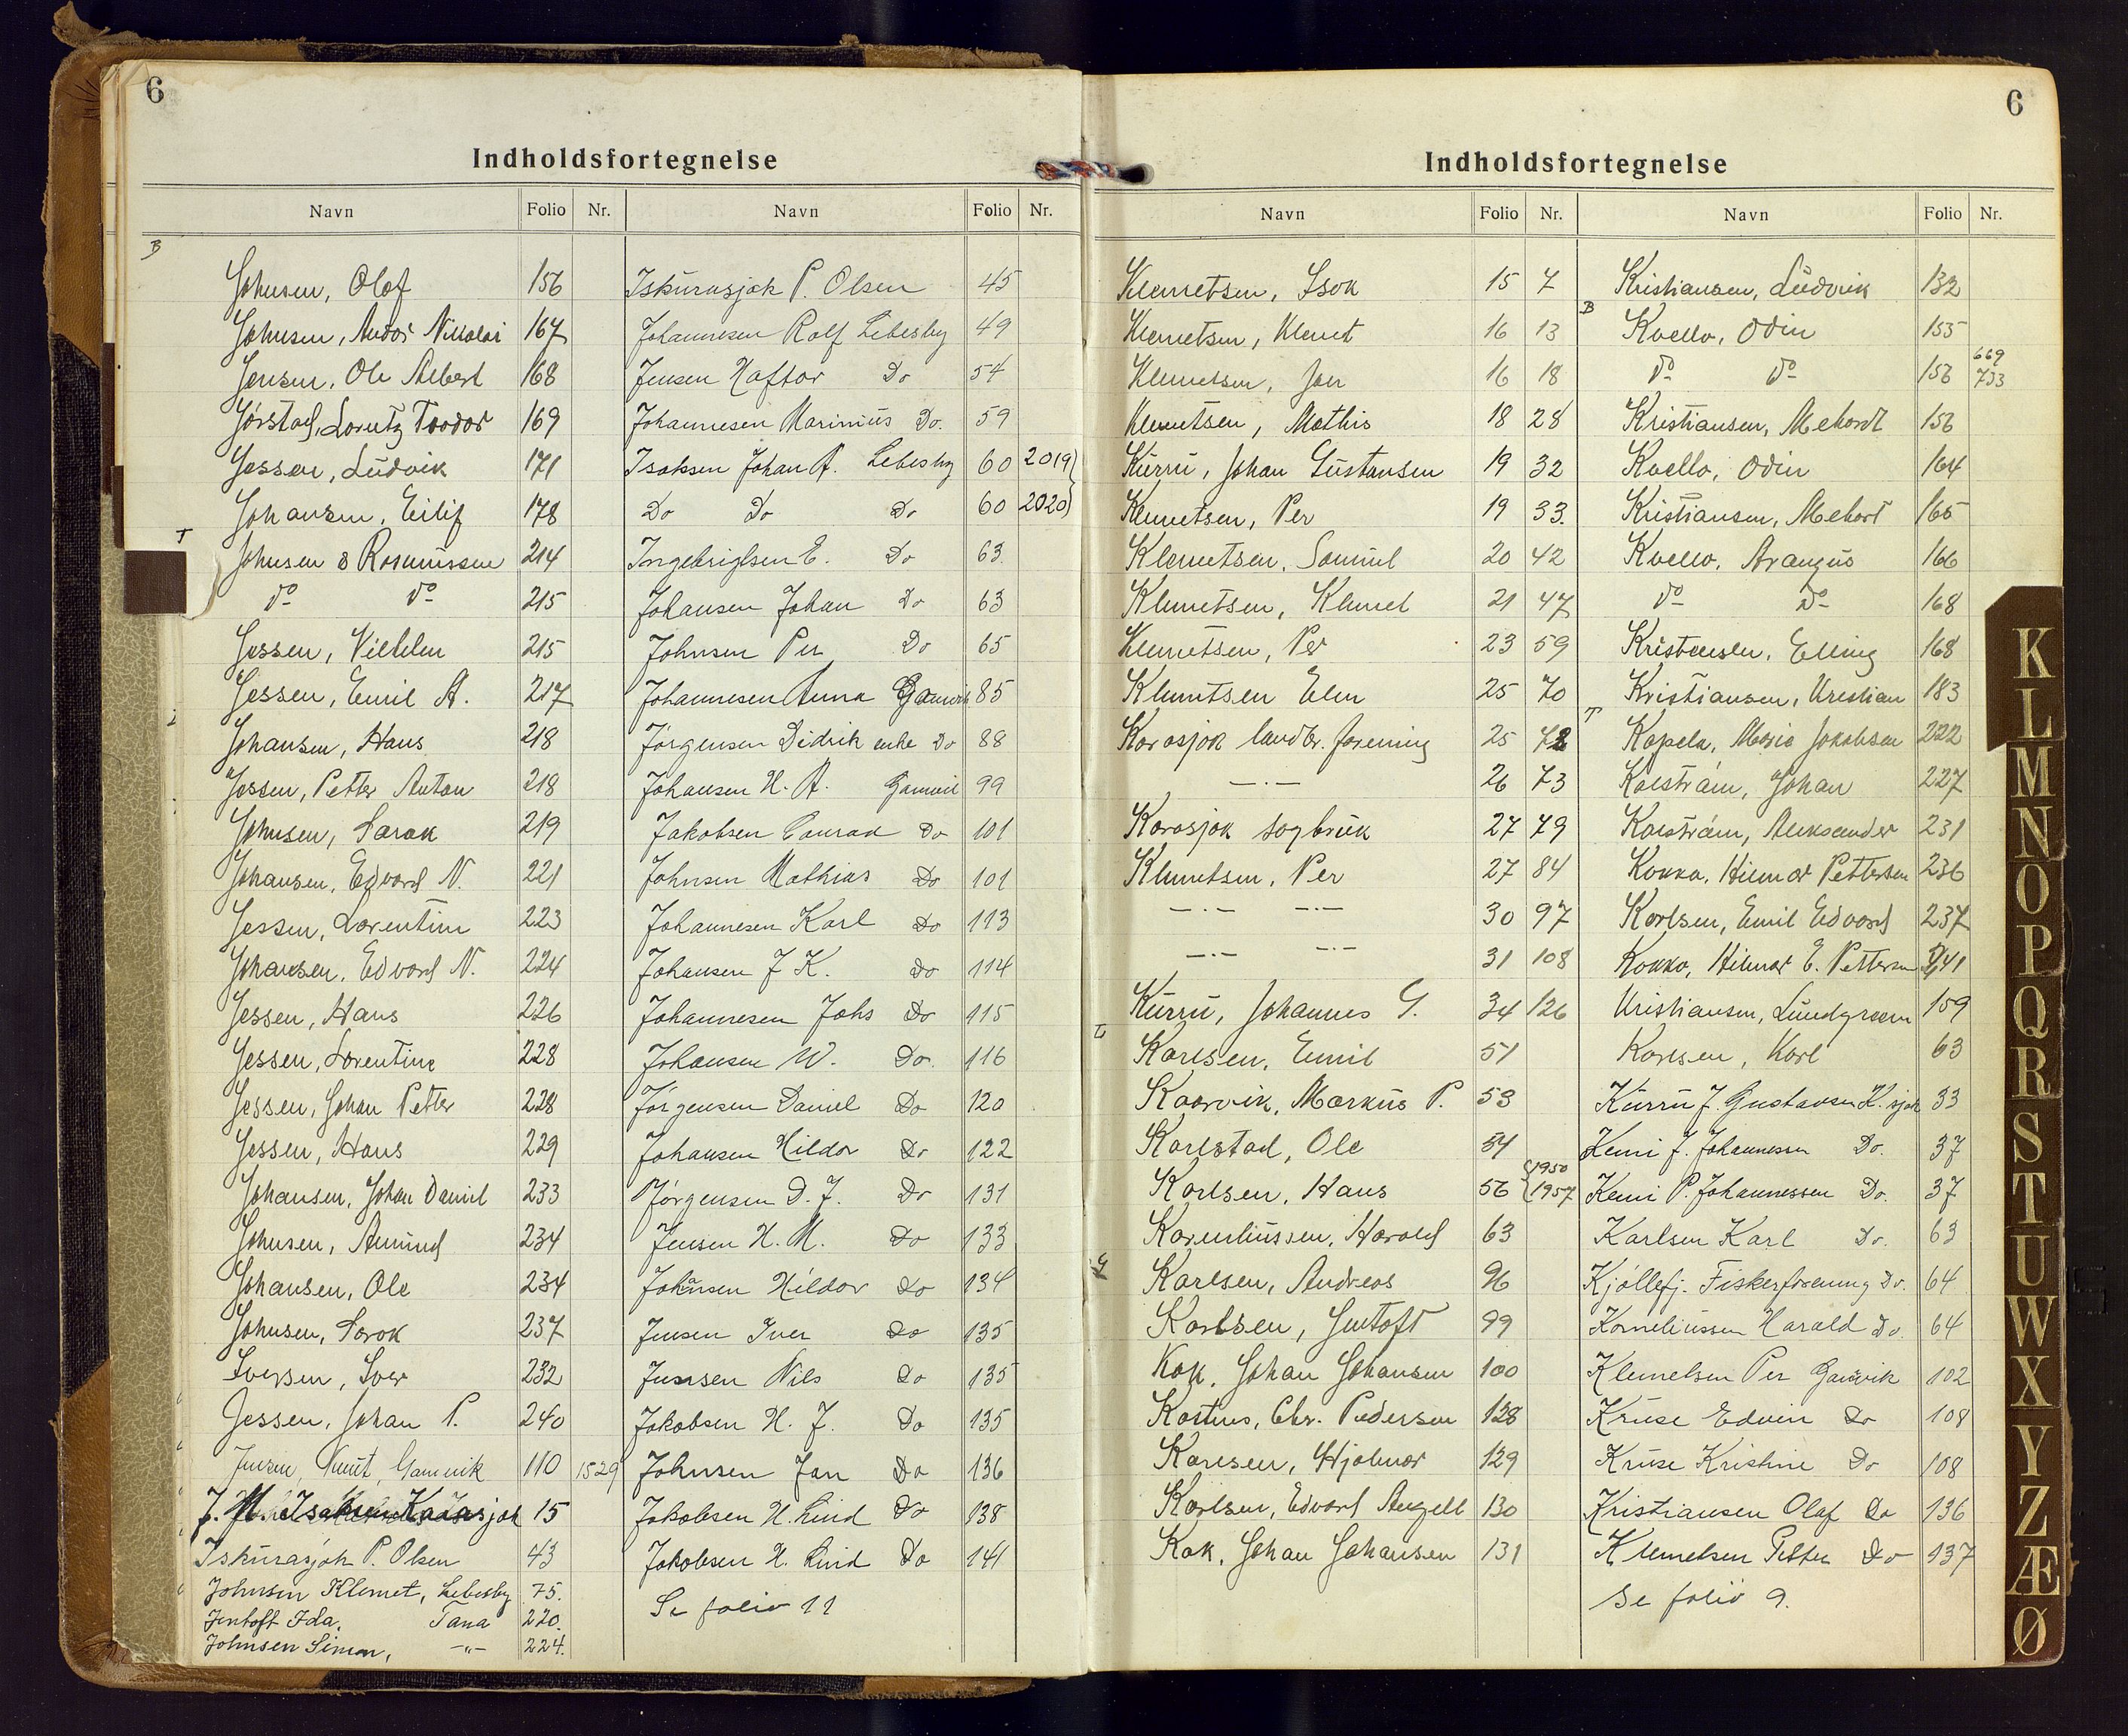 6
Indholdsfortegnelse
Navn Folio Nr. Navn Folio Nr.
B
Johnsen, Olaf 156
Johnsen, Andor Nikolai 167
Jensen, Ole Albert 168
Jörstad, Lorentz Teodor 169
Jessen, Ludvik 171
Johansen, Eilif 178
T
Johnsen & Rasmussen 214
do do 215
Jessen, Vilhelm 215
Jessen, Emil A. 217
Johansen, Hans 218
Jessen, Petter Anton 218
Johnsen, Sarak 219
Johansen, Edvard N. 221
Jessen, Lorentine 223
Johansen, Edvard N. 224
Jessen, Hans 226
Jessen, Lorentine 228
Jessen, Johan Petter 228
Jessen, Hans 229
Johansen, Johan Daniel 233
Johnsen, Amund 234
Johansen, Ole 234
Johnsen, Sarak 237
Iversen, Iver 232
Jessen, Johan P. 240
Jensen, Knut, Gamvik 110 1529
J. M. Isaksen Karasjok 15
Iskurasjok P. Olsen 43
Johnsen Klemet, Lebesby 75.
Jentoft Ida, Tana 220.
Johnsen Simon, -"- 224.
Iskurasjok P. Olsen 45
Johannesen Rolf Lebesby 49
Jensen Haftor Do 54
Johannesen Marinius Do. 59
Isaksen Johan A. Lebesby 60 2019
Do Do Do 60 2020
Ingebrigtsen E. Do 63.
Johansen Johan Do 63
Johnsen Per Do 65
Johannesen Anna Gamvik 85
Jörgensen Didrik enke Do 88
Johansen H. A. Gamvik 99
Jakobsen Conrad Do 101
Johnsen Mathias Do 101
Johannesen Karl Do 113
Johansen J K. Do 114
Johannesen Johs Do 115
Johansen W. Do. 116
Jörgensen Daniel Do 120
Johansen Hildor Do 122
Jörgensen D. J. Do 131
Jensen H. M. Do 133
Johansen Hildor Do 134
Jensen Iver Do 135
Jensen Nils Do 135
Jakobsen H. J. Do 135
Johnsen Jan Do 136
Jakobsen H. Lind Do 138
Jakobsen H. Lind Do 141
Se folio 11
6
Indholdsfortegnelse
Navn Folio Nr. Navn Folio Nr.
Klemetsen, Isak 15 7
Klemetsen, Klemet 16 13
Klemetsen, Jon 16 18
Klemetsen, Mathis 18 28
Kurru, Johan Gustavsen 19 32
Klemetsen, Per 19 33.
Klemetsen, Samuel 20 42
Klemetsen, Klemet 21 47
Klemetsen, Per 23 59
Klemetsen Elen 25 70
Karasjok landbr. forening 25 72
—·— 26 73
Karasjok sagbruk 27 79
Klemetsen, Per 27 84
—·— —·— 30 97
—·— —·— 31 108
Kurru, Johannes G. 34 126
L
Karlsen, Emil 51
Kaarvik, Markus P. 53
Karlstad, Ole 54
Karlsen, Hans 56 1950 1957
Korneliussen, Harald 63
G
Karlsen, Andreas 96
Karlsen, Gustaft 99
Kok, Johan Johansen 100
Kostnes, Chr. Pedersen 128
Karlsen, Hjalmar 129
Karlsen, Edvart Angell 130
Kok, Johan Johansen 131
Kristiansen, Ludvik 132
B
Kvello, Odin 155
do do 156 669 733
Kristiansen, Mehardt 156
Kvello, Odin 164
Kristiansen, Mehart 165
Kvello, Arangus 166
do do 168
Kristensen, Elling 168
Kristiansen, Kristian 183
T
Kapela, Marie Jakobsen 222
Kolström, Johan 227
Kolström, Aleksander 231
Kokko, Hilmar Pettersen 236
Karlsen, Emil Edvard 237
Kokko, Hilmar E. Pettersen 241
Kristiansen, Lundgreen 159
Karlsen, Karl 63
Kurru J. Gustavsen K.sjok 33
Kemi J. Johannessen Do. 37
Kemi P. Johannessen Do. 37
Karlsen Karl Do. 63
Kjöllefj. Fiskerforening Do. 64
Korneliussen Harald Do. 64
Klemetsen Per Gamvik 102
Kruse Edvin Do 108
Kruse Kristine Do 108
Kristiansen Olaf Do 136
Klemetsen Petter Do 137
Se folio 9.
K
L
M
N
O
P
Q
R
S
T
U
W
X
Y
Z
Æ
Ø